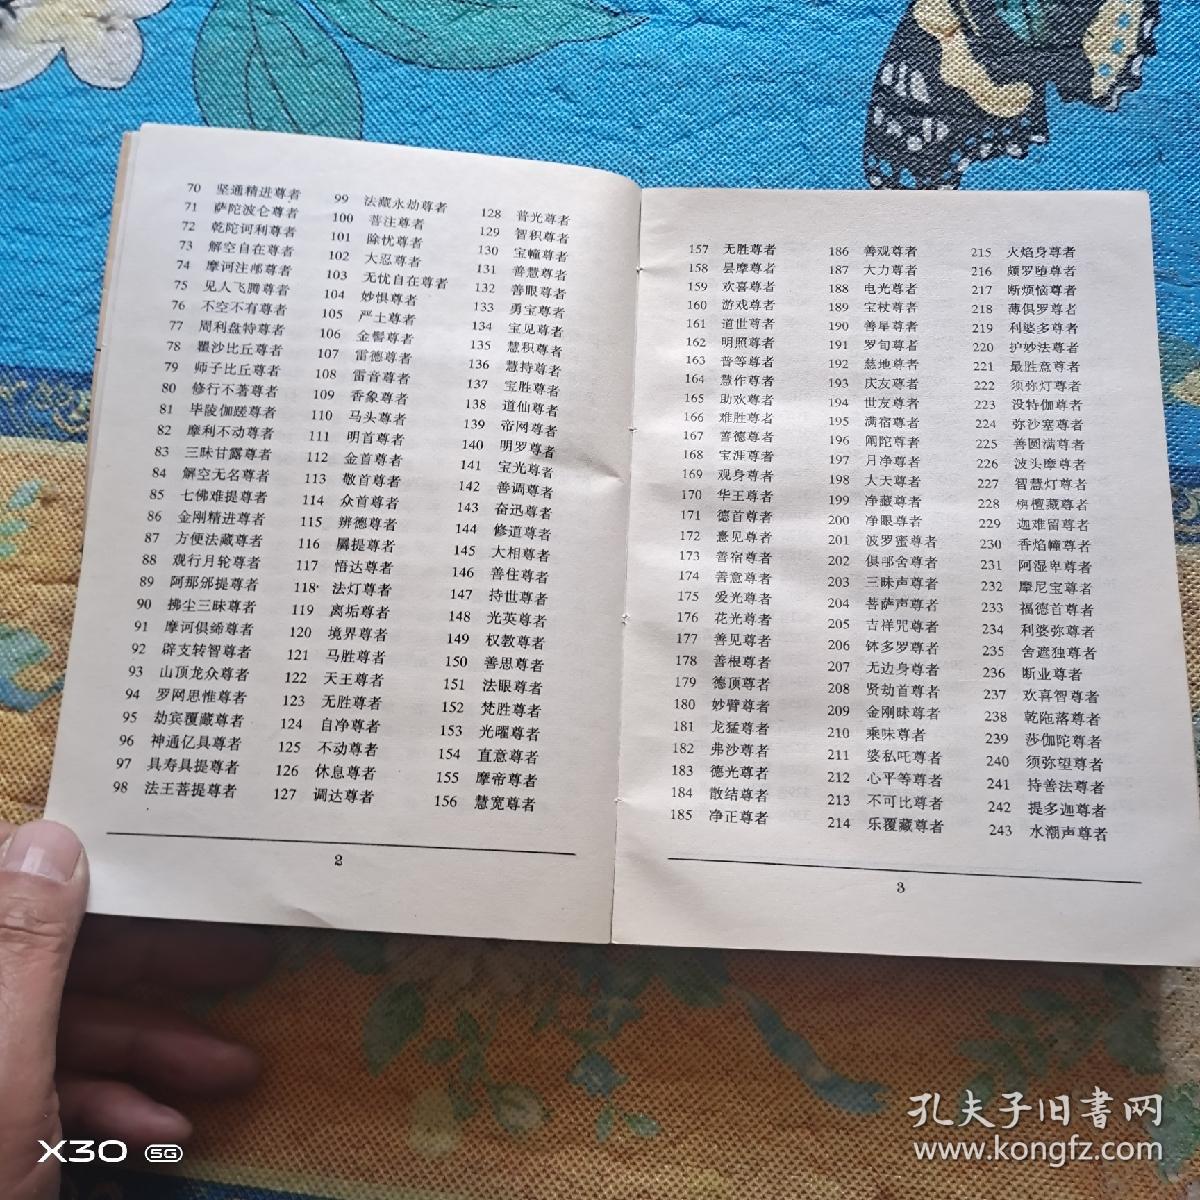 70 坚通精进尊者
71 萨陀波仑尊者
72 乾陀诃利尊者
73 解空自在尊者
74 摩诃注那尊者
75 见人飞腾尊者
76 不空不有尊者
77 周利盘特尊者
78 瞿沙比丘尊者
79 师子比丘尊者
80 修行不著尊者
81 毕陵伽蹉尊者
82 摩利不动尊者
83 三昧甘露尊者
84 解空无名尊者
85 七佛难提尊者
86 金刚精进尊者
87 方便法藏尊者
88 观行月轮尊者
89 阿那邠提尊者
90 拂尘三昧尊者
91 摩诃俱绨尊者
92 辟支转智尊者
93 山顶龙众尊者
94 罗网思惟尊者
95 劫宾覆藏尊者
96 神通亿具尊者
97 具寿具提尊者
98 法王菩提尊者
99 法藏永劫尊者
100 善注尊者
101 除忧尊者
102 大忍尊者
103 无忧自在尊者
104 妙惧尊者
105 严土尊者
106 金髻尊者
107 雷德尊者
108 雷音尊者
109 香象尊者
110 马头尊者
111 明首尊者
112 金首尊者
113 敬首尊者
114 众首尊者
115 辨德尊者
116 羼提尊者
117 悟达尊者
118 法灯尊者
119 离垢尊者
120 境界尊者
121 马胜尊者
122 天王尊者
123 无胜尊者
124 自净尊者
125 不动尊者
126 休息尊者
127 调达尊者
128 普光尊者
129 智积尊者
130 宝幢尊者
131 善慧尊者
132 善眼尊者
133 勇宝尊者
134 宝见尊者
135 慧积尊者
136 慧持尊者
137 宝胜尊者
138 道仙尊者
139 帝网尊者
140 明罗尊者
141 宝光尊者
142 善调尊者
143 奋迅尊者
144 修道尊者
145 大相尊者
146 善住尊者
147 持世尊者
148 光英尊者
149 权教尊者
150 善思尊者
151 法眼尊者
152 梵胜尊者
153 光曜尊者
154 直意尊者
155 摩帝尊者
156 慧宽尊者
2
157 无胜尊者
158 昙摩尊者
159 欢喜尊者
160 游戏尊者
161 道世尊者
162 明照尊者
163 普等尊者
164 慧作尊者
165 助欢尊者
166 难胜尊者
167 善德尊者
168 宝涯尊者
169 观身尊者
170 华王尊者
171 德首尊者
172 憙见尊者
173 善宿尊者
174 善意尊者
175 爱光尊者
176 花光尊者
177 善见尊者
178 善根尊者
179 德顶尊者
180 妙臂尊者
181 龙猛尊者
182 弗沙尊者
183 德光尊者
184 散结尊者
185 净正尊者
186 善观尊者
187 大力尊者
188 电光尊者
189 宝杖尊者
190 善星尊者
191 罗旬尊者
192 慈地尊者
193 庆友尊者
194 世友尊者
195 满宿尊者
196 阐陀尊者
197 月净尊者
198 大天尊者
199 净藏尊者
200 净眼尊者
201 波罗蜜尊者
202 俱那舍尊者
203 三昧声尊者
204 菩萨声尊者
205 吉祥咒尊者
206 钵多罗尊者
207 无边身尊者
208 贤劫首尊者
209 金刚昧尊者
210 乘味尊者
211 婆私吒尊者
212 心平等尊者
213 不可比尊者
214 乐覆藏尊者
215 火焰身尊者
216 颇罗堕尊者
217 断烦恼尊者
218 薄俱罗尊者
219 利婆多尊者
220 护妙法尊者
221 最胜意尊者
222 须弥灯尊者
223 没特伽尊者
224 弥沙塞尊者
225 善圆满尊者
226 波头摩尊者
227 智慧灯尊者
228 栴檀藏尊者
229 迦难留尊者
230 香焰幢尊者
231 阿湿卑尊者
232 摩尼宝尊者
233 福德首尊者
234 利婆弥尊者
235 舍遮独尊者
236 断业尊者
237 欢喜智尊者
238 乾陁落尊者
239 莎伽陀尊者
240 须弥望尊者
241 持善法尊者
242 提多迦尊者
243 水潮声尊者
3
X30 5G
孔夫子旧書网
www.kongfz.com